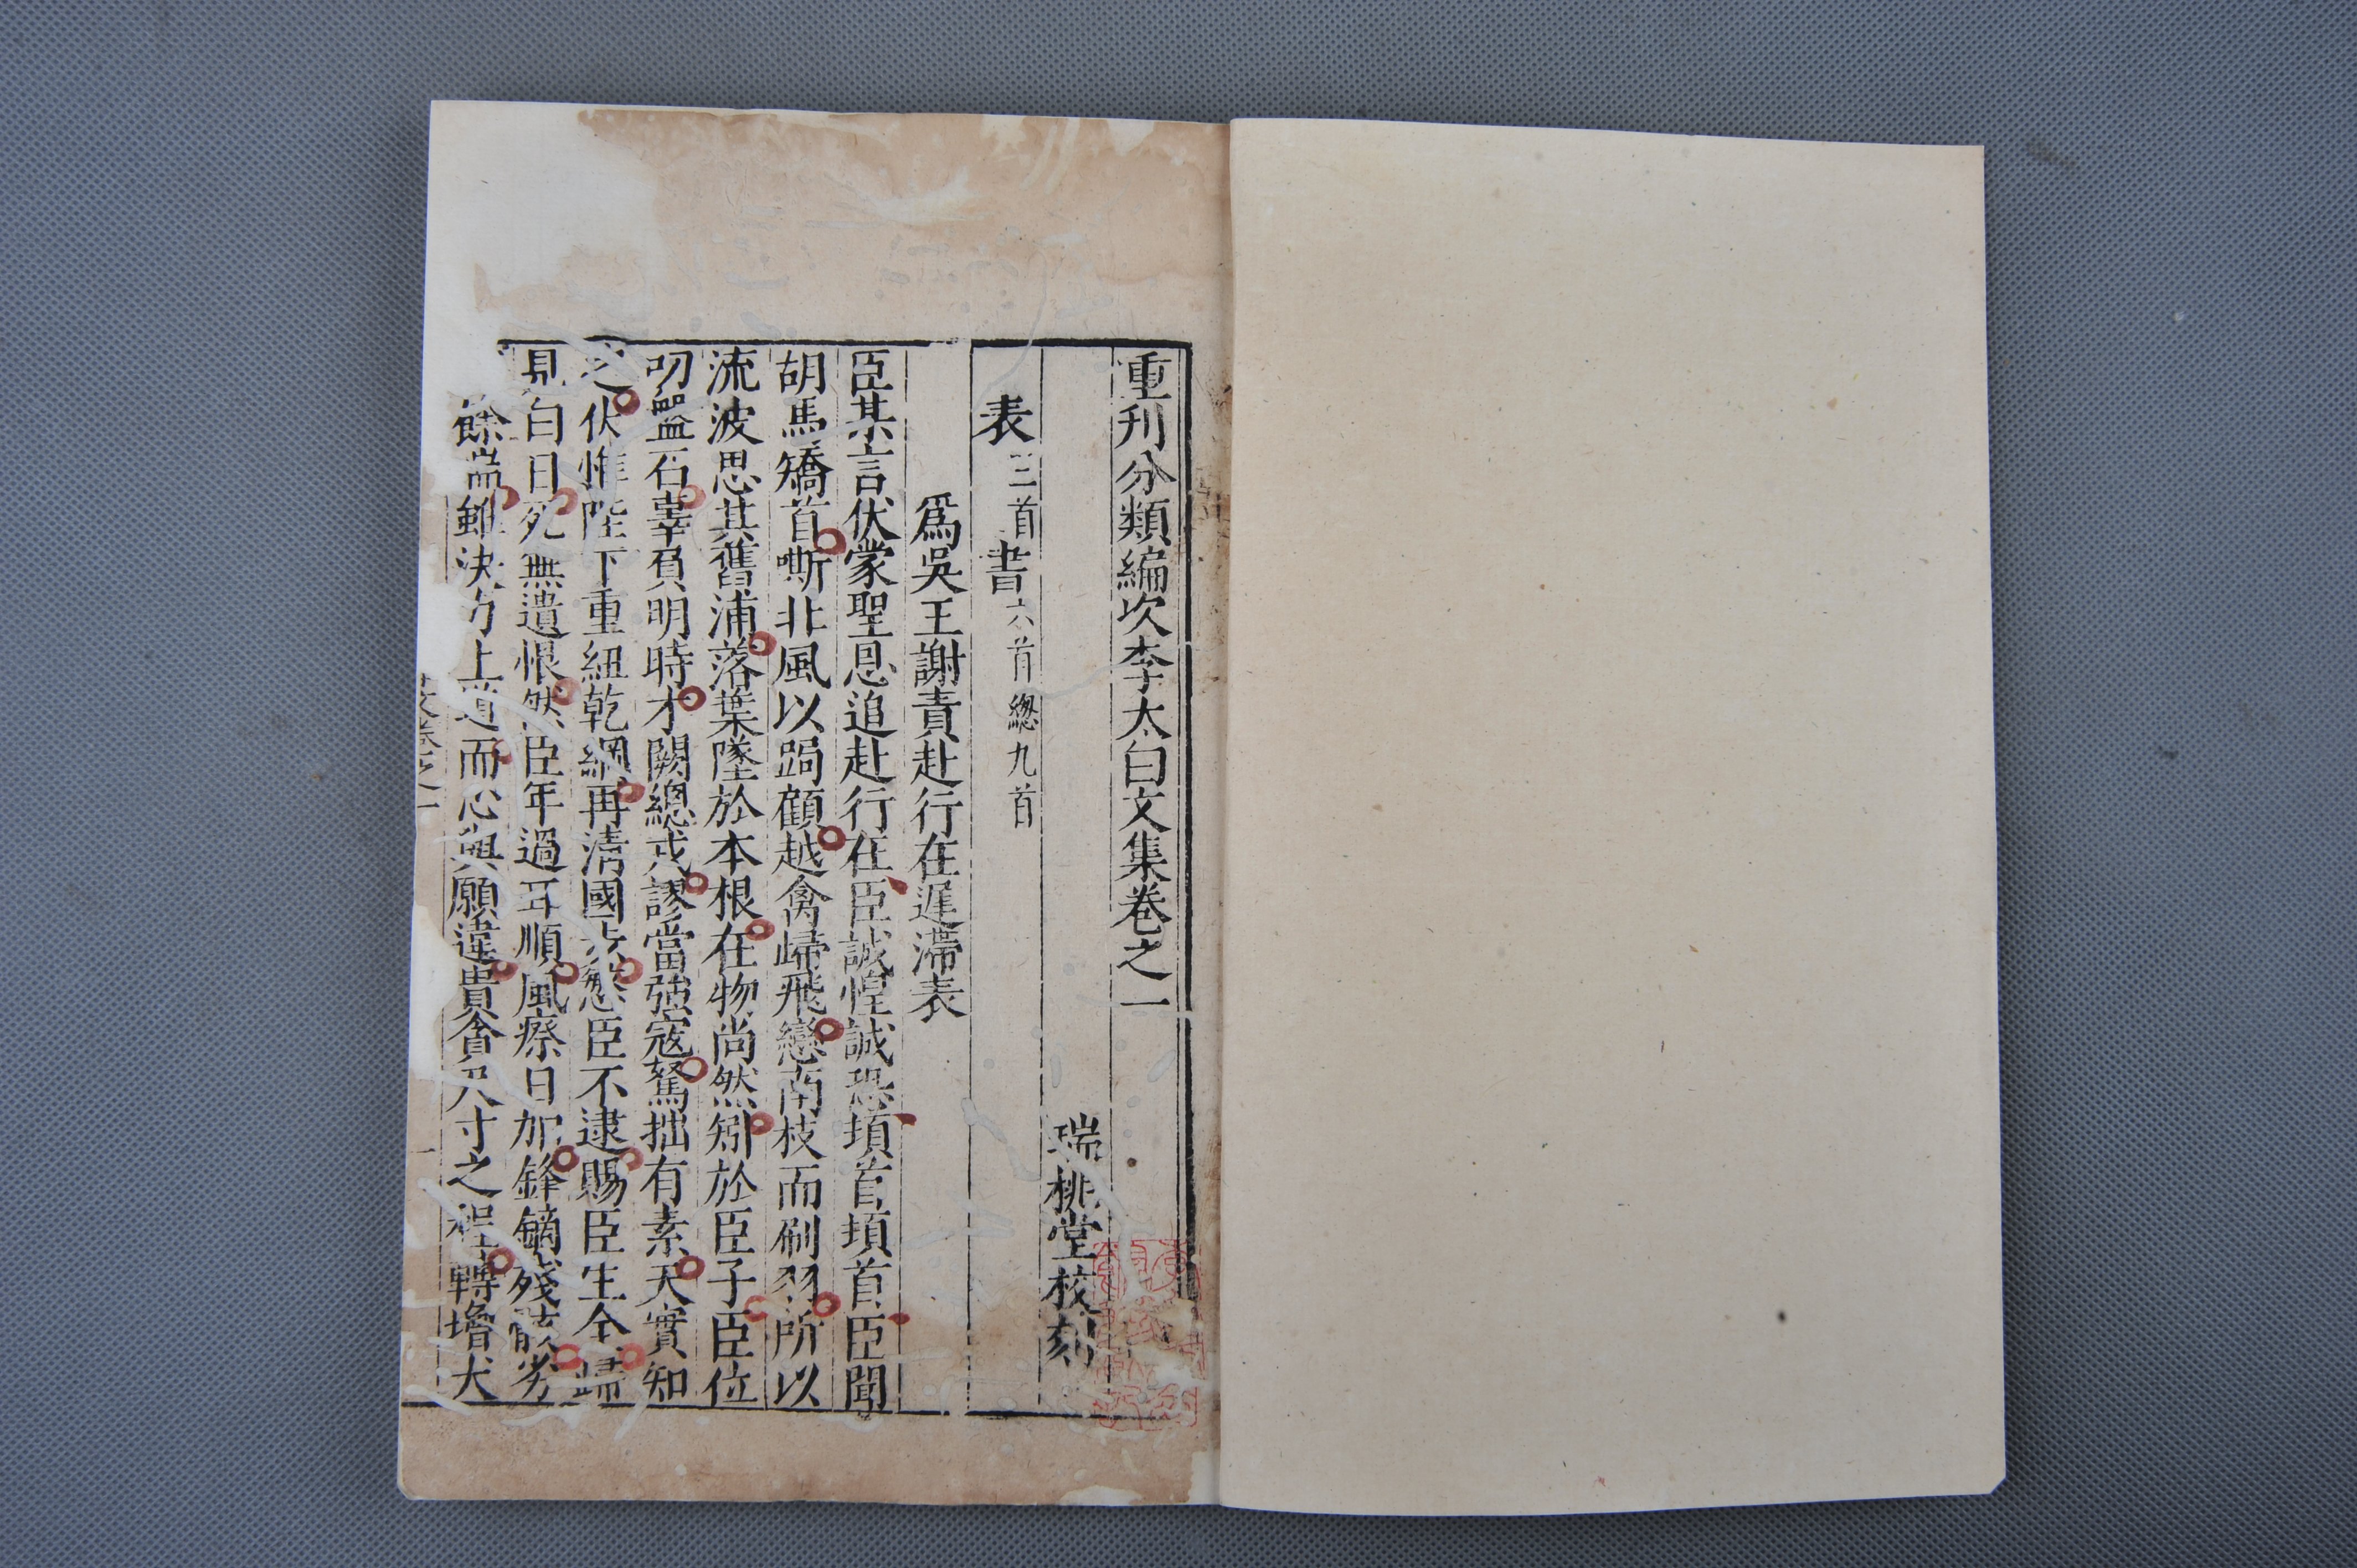 重刊分類編次李太白文集卷之一
瑞桃堂校刻
表三首書六首總九首
爲吳王謝責赴行在遲滯表
臣某言伏蒙聖恩追赴行在臣誠惶誠恐頓首頓首臣聞
胡馬矯首嘶非風以跼顧越禽歸飛戀南枝而刷羽所以
流波思其舊浦落葉墜於本根在物尚然矧於臣子臣位
叨盤石辜負明時才闕總戎謬當強寇駑拙有素天實知
之伏惟陛下重紐乾綱再清國步愍臣不逮賜臣生全歸
見白日死無遺恨然臣年過耳順風瘵日加鋒鏑殘骸劣
餘喘雖決力上道而心與願違貴貪尺寸之程轉增犬
文卷之一
一